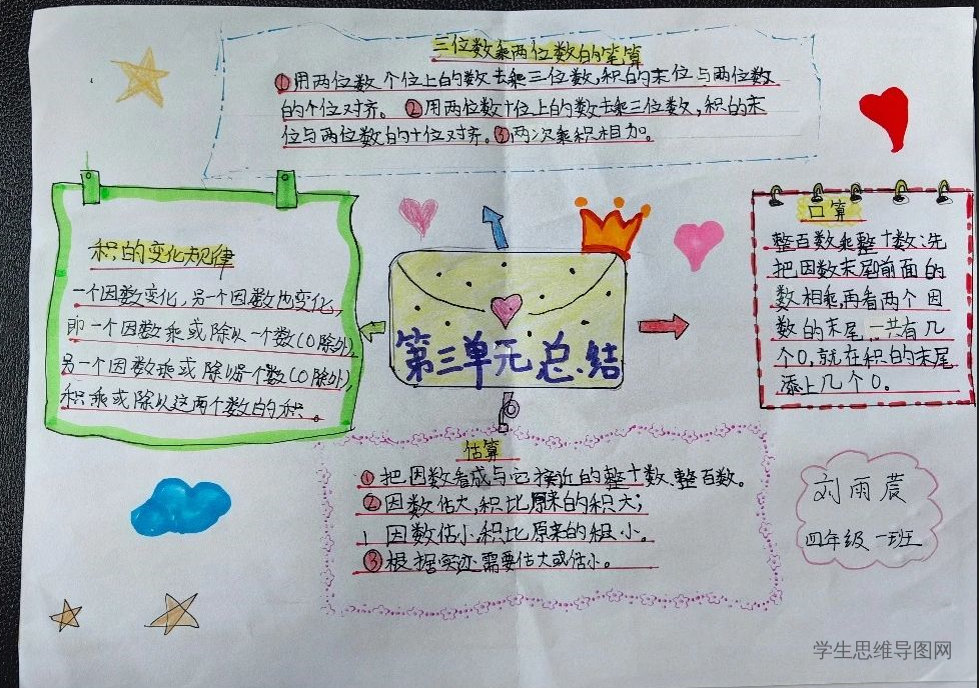 三位数乘两位数的笔算
①用两位数个位上的数去乘三位数,积的末位与两位数
的个位对齐。②用两位数十位上的数去乘三位数,积的末
位与两位数的十位对齐。③两次乘积相加。
积的变化规律
一个因数变化,另一个因数也变化,
即一个因数乘或除以一个数(0除外),
另一个因数乘或除以另个数(0除外),
积乘或除以这两个数的积。
第三单元总结
口算
整百数乘整十数:先
把因数末尾0前面的
数相乘,再看两个因
数的末尾一共有几
个0,就在积的末尾
添上几个0。
估算
①把因数看成与它接近的整十数、整百数。
②因数估大,积比原来的积大;
因数估小,积比原来的积小。
③根据实际需要估大或估小。
刘雨
四年级一班
学生思维导图网